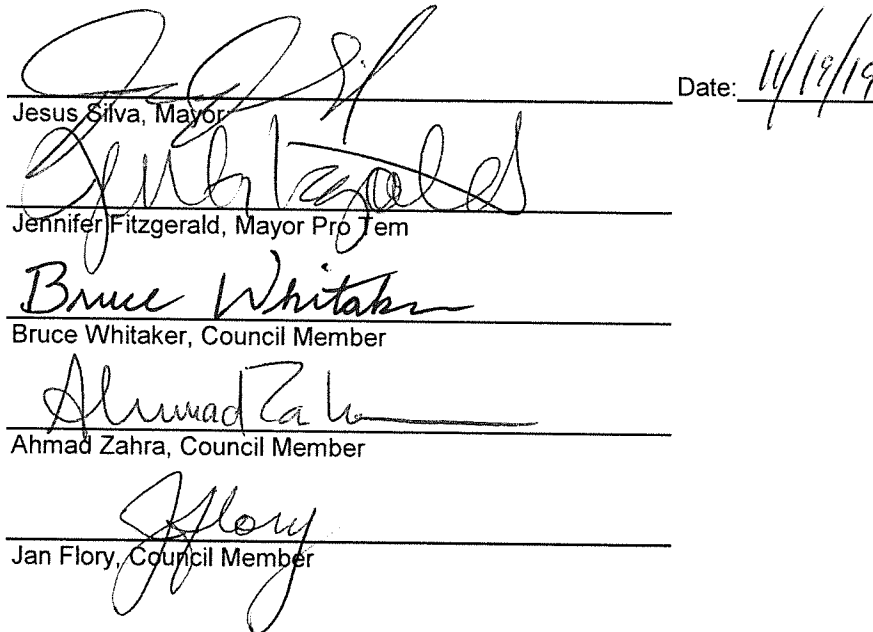 Date: 11/19/19
Jesus Silva, Mayor
Jennifer Fitzgerald, Mayor Pro Tem
Bruce Whitaker
Bruce Whitaker, Council Member
Ahmad Zahra
Ahmad Zahra, Council Member
JFlory
Jan Flory, Council Member